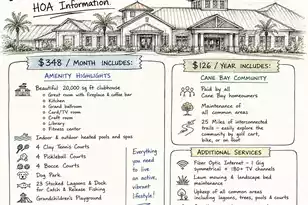 HOA Information
$348 / MONTH INCLUDES:
AMENITY HIGHLIGHTS
Beautiful 20,000 sq ft clubhouse
• Great room with fireplace & coffee bar
• Kitchen
• Grand ballroom
• Card/TV room
• Craft room
• Library
• Fitness center
Indoor & outdoor heated pools and spas
4 Clay Tennis Courts
4 Pickleball Courts
4 Bocce Courts
Dog Park
23 Stocked Lagoons & Dock
for Catch & Release Fishing
Grandchildren's Playground
Everything
you need
to live
an active,
vibrant
lifestyle!
$126 / YEAR INCLUDES:
CANE BAY COMMUNITY
Paid by all
Cane Bay homeowners
Maintenance of
all common areas
25 Miles of interconnected
trails - easily explore the
community by golf cart,
bike, or on foot
ADDITIONAL SERVICES
Fiber Optic Internet - 1 Gig
symmetrical + 180+ TV channels
Lawn mowing & landscape bed
maintenance
Upkeep of all common areas
including lagoons, trees, pools & courts